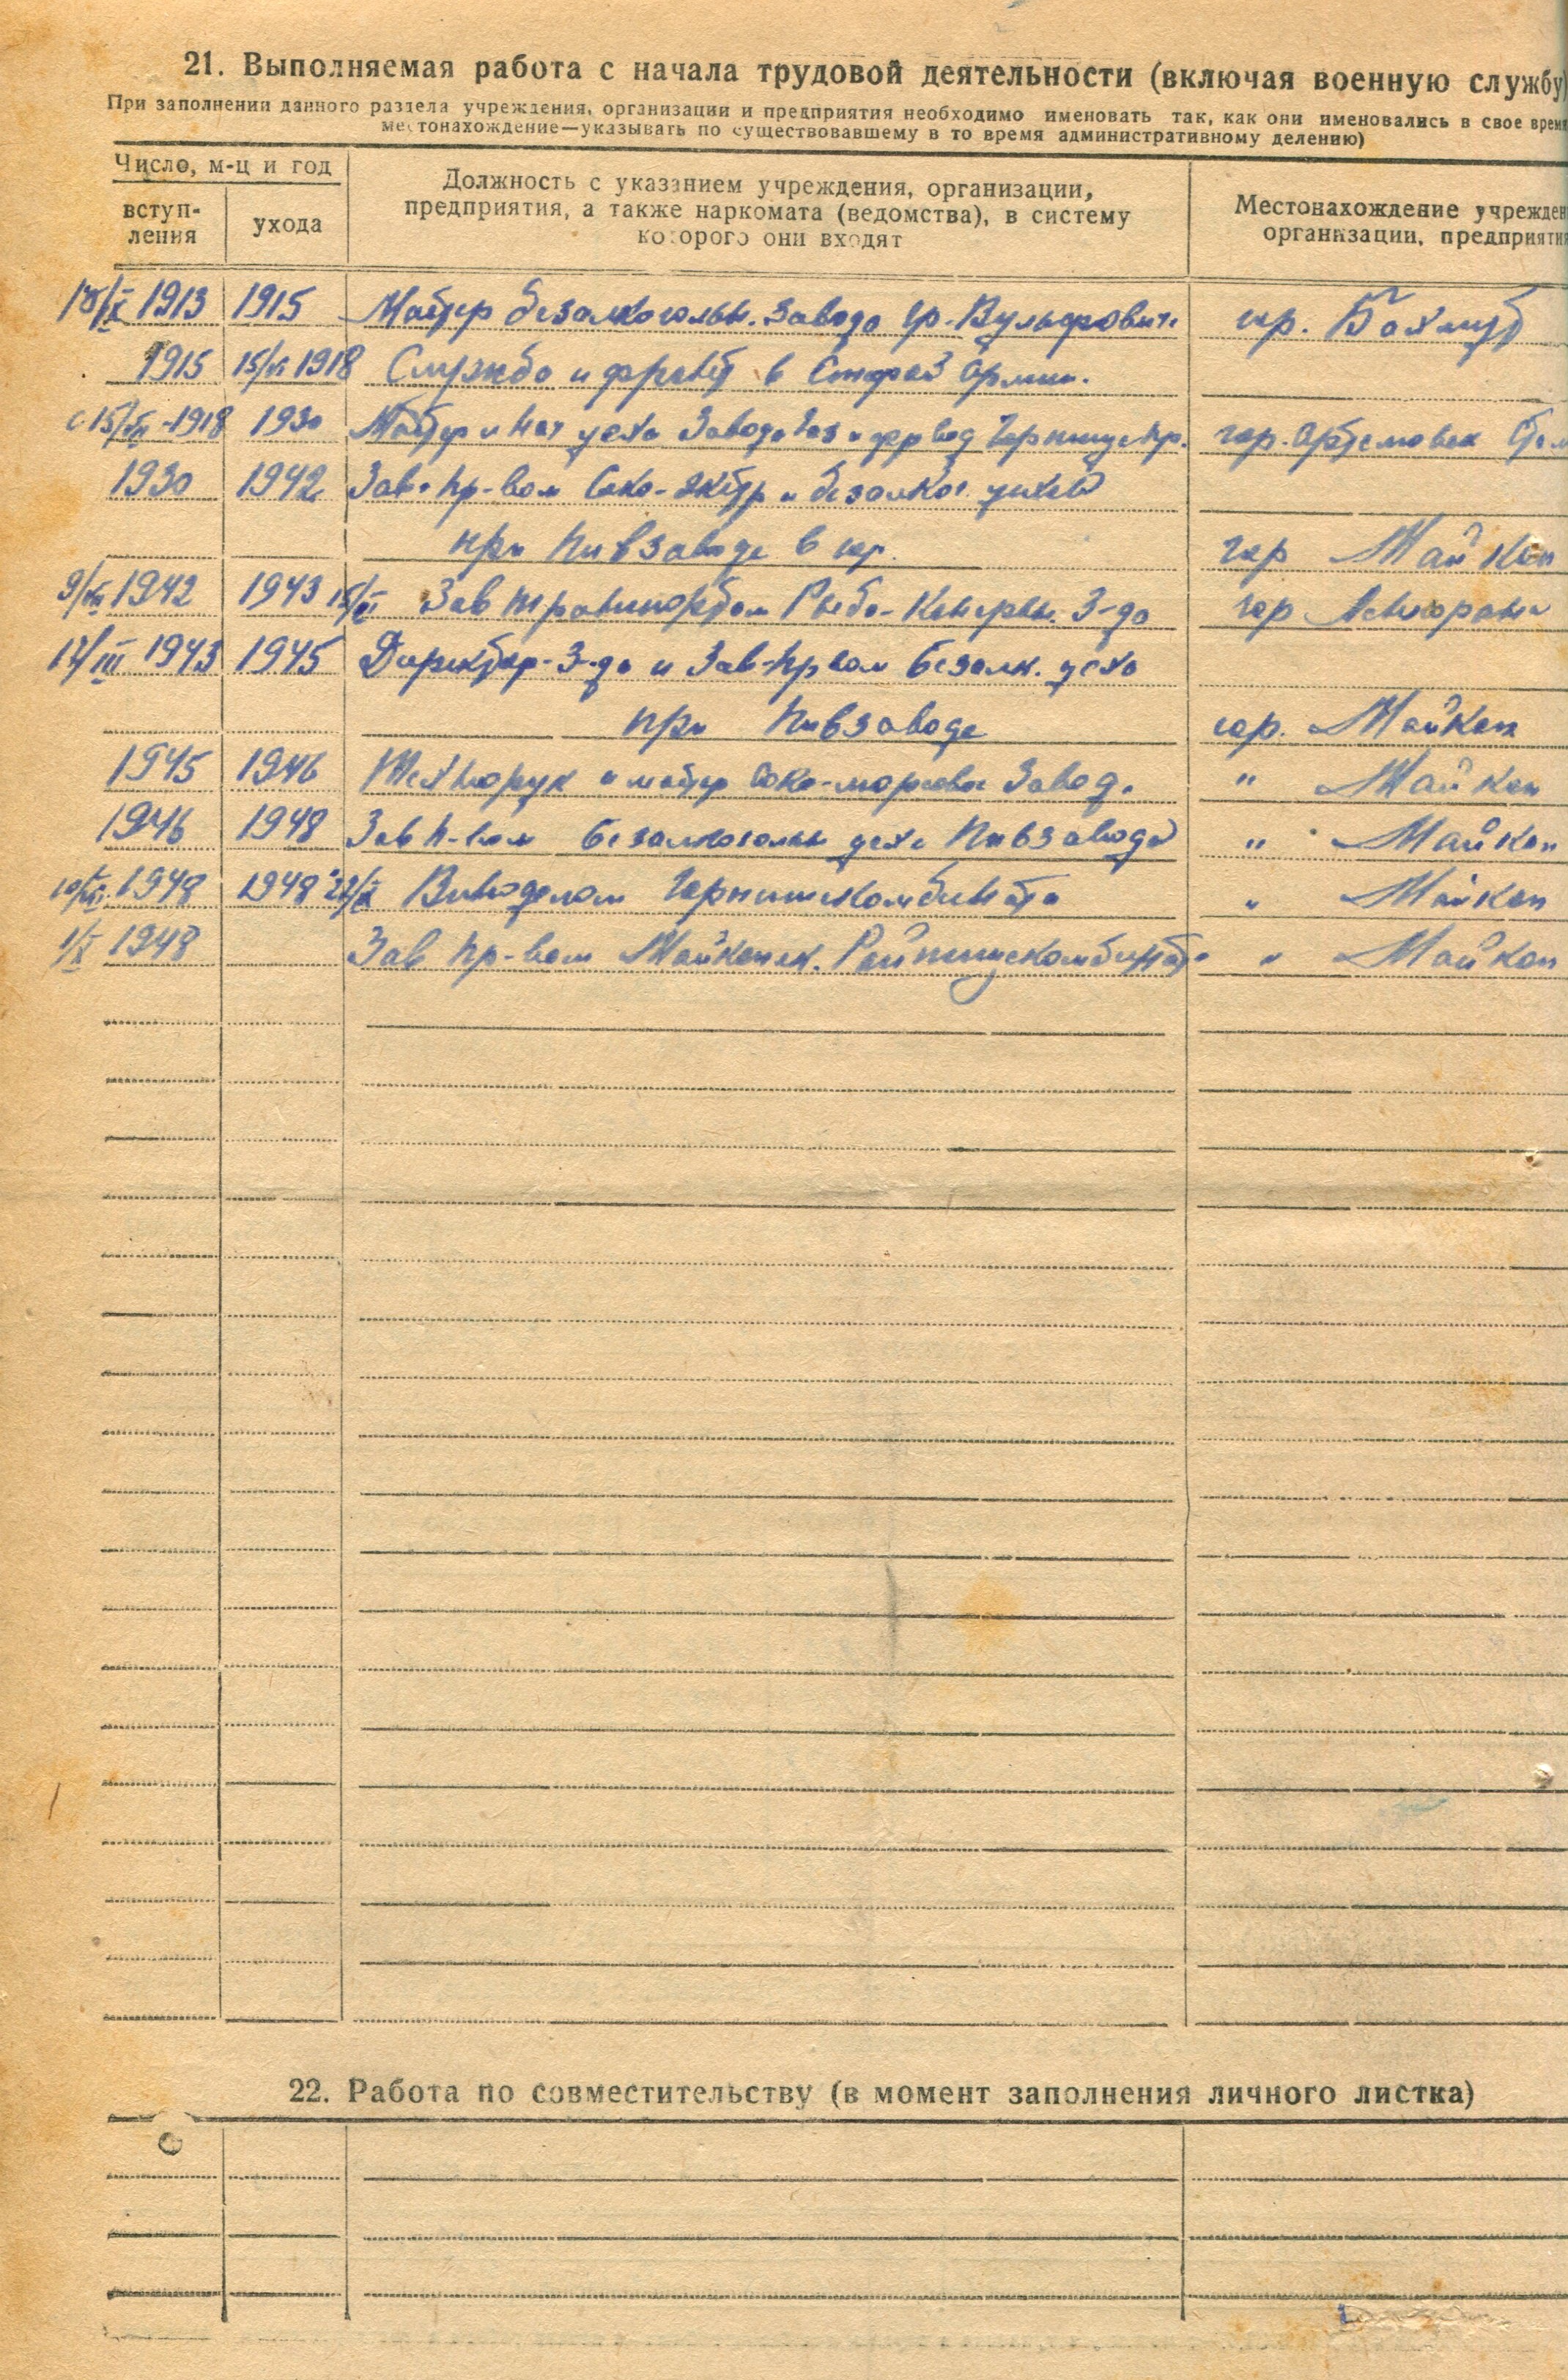 21. Выполняемая работа с начала трудовой деятельности (включая военную службу)
При заполнении данного раздела учреждения, организации и предприятия необходимо именовать так, как они именовались в свое время
местонахождение—указывать по существовавшему в то время административному делению)
Число, м-ц и год
вступ-
ления
ухода
Должность с указанием учреждения, организации,
предприятия, а также наркомата (ведомства), в систему
которого они входят
Местонахождение учрежден
организации, предприятия
18/IX 1913 1915 Мастер безалкогольн. завода гр. Вульфович гор. Бахмут
1915 15/VI 1918 Служба и фронт в Старой Армии.
1918 1930 Мастер и Нач цеха завода вод Горпищепр. гор. Артемовск
1930 1942 Зав. пр-вом Соко-экстр и безалког. цехов
при Пивзаводе в гор. гор Майкоп
9/VIII 1942 1943 Зав транспортом Рыбо-Консервн. З-да гор
17/III 1943 1945 Директор-З-да и Зав-прvом безалк. цеха
при Пивзаводе гор. Майкоп
1945 1946 Технорук и мастер Соко-морсовый завод. " Майкоп
1946 1948 Зав п-вом безалкогольн цеха Пивзавода " Майкоп
1948 1948 Виноделом Горпищекомбината " Майкоп
1/X 1948 Зав пр-вом Майкопск. Райпищекомбината " Майкоп
22. Работа по совместительству (в момент заполнения личного листка)